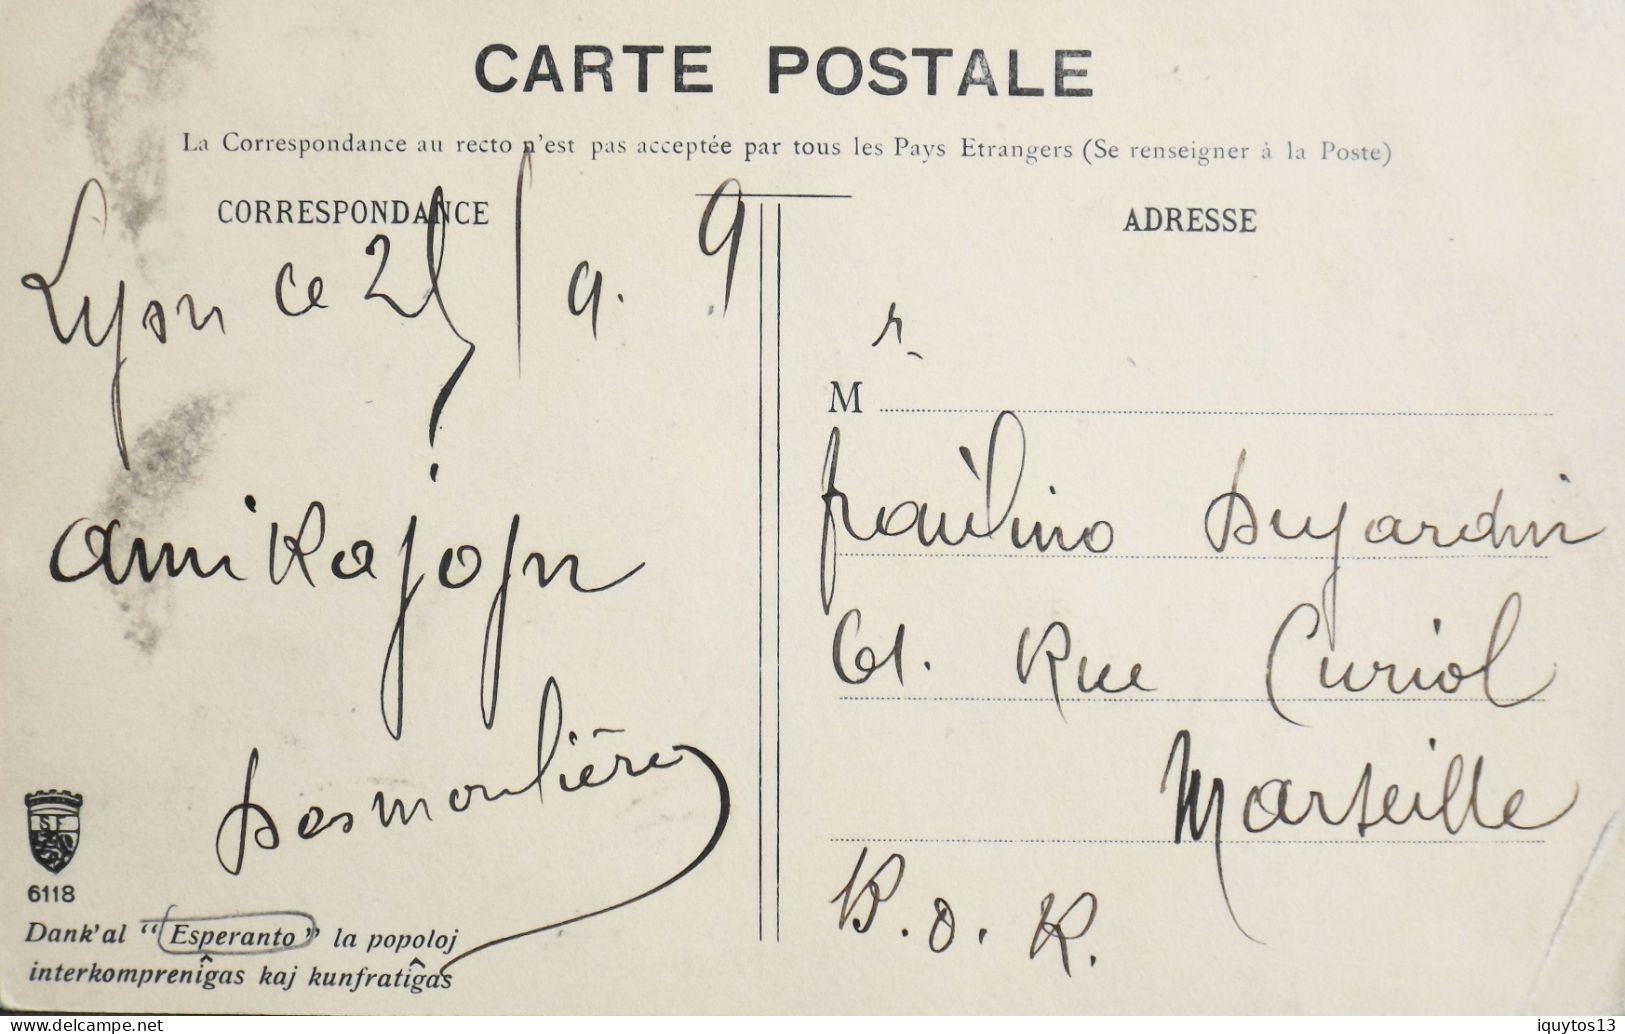 CARTE POSTALE
La Correspondance au recto n'est pas acceptée par tous les Pays Etrangers (Se renseigner à la Poste)
CORRESPONDANCE
Lyon ce 25/9.9
amikajojn
Desmoulière
S F
6118
Dank'al "Esperanto" la popoloj
interkompreniĝas kaj kunfratiĝas
ADRESSE
M
fraŭlino Dujardin
61. Rue Curiol
Marseille
B. d. R.
iquytos13